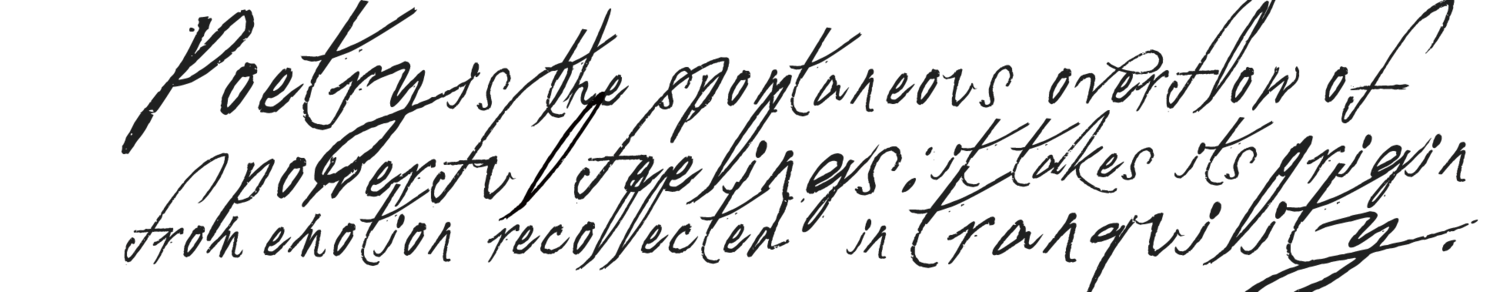 Poetry is the spontaneous overflow of
powerful feelings: it takes its origin
from emotion recollected in tranquility.